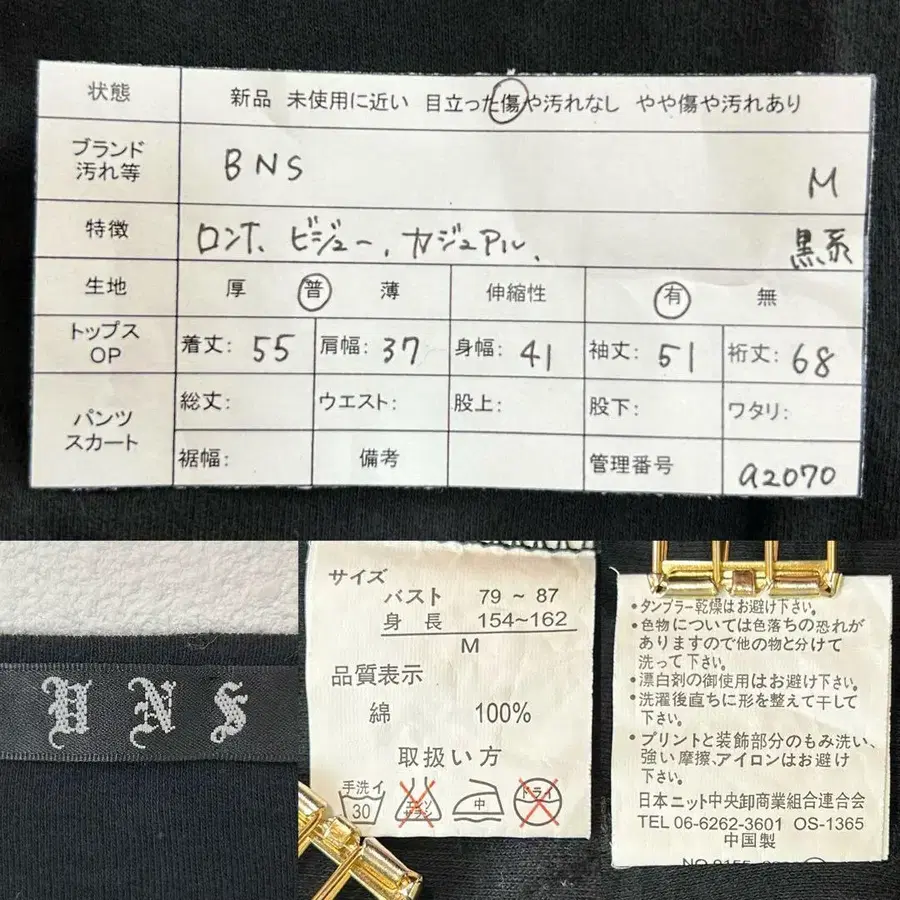 状態 新品 未使用に近い 目立った傷や汚れなし やや傷や汚れあり
ブランド
汚れ等 BNS M
特徴 ロンT、ビジュー、カジュアル、 黒系
生地 厚 普 薄 伸縮性 有 無
トップス
OP 着丈: 55 肩幅: 37 身幅: 41 袖丈: 51 裄丈: 68
パンツ
スカート 総丈: ウエスト: 股上: 股下: ワタリ:
裾幅: 備考 管理番号 a2070
BNS
サイズ
バスト 79 ~ 87
身長 154~162
M
品質表示
綿 100%
取扱い方
手洗イ 30 エンソ サラシ 中 ドライ
•タンブラー乾燥はお避け下さい。
•色物については色落ちの恐れが
ありますので他の物と分けて
洗って下さい。
•漂白剤の御使用はお避け下さい。
•洗濯後直ちに形を整えて干して
下さい。
•プリントと装飾部分のもみ洗い、
強い摩擦、アイロンはお避け
下さい。
日本ニット中央卸商業組合連合会
TEL 06-6262-3601 OS-1365
中国製